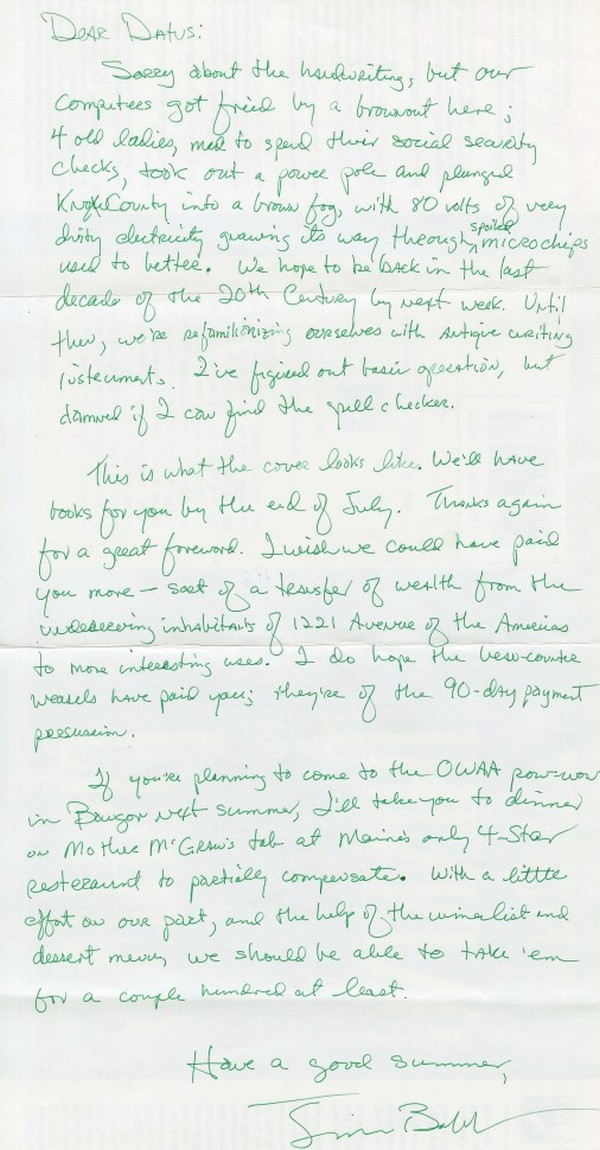 Dear Datus:
Sorry about the handwriting, but our
computers got fried by a brownout here;
4 old ladies, mad to spend their social security
checks, took out a power pole and plunged
Knox County into a brown fog, with 80 volts of very
dirty electricity gnawing its way through spoiled microchips
used to better. We hope to be back in the last
decade of the 20th Century by next week. Until
then, we're refamilionizing ourselves with antique writing
instruments. I've figured out basic operation, but
damned if I can find the spell checker.
This is what the cover looks like. We'll have
books for you by the end of July. Thanks again
for a great foreword. I wish we could have paid
you more — sort of a transfer of wealth from the
undeserving inhabitants of 1221 Avenue of the Americas
to more interesting uses. I do hope the bean-counter
weasels have paid you; they're of the 90-day payment
persuasion.
If you're planning to come to the OWAA pow-wow
in Bangor next summer, I'll take you to dinner
on Mother McGraw's tab at Maine's only 4-Star
resteraunt to partially compensate. With a little
effort on our part, and the help of the wine list and
dessert menu, we should be able to take 'em
for a couple hundred at least.
Have a good summer,